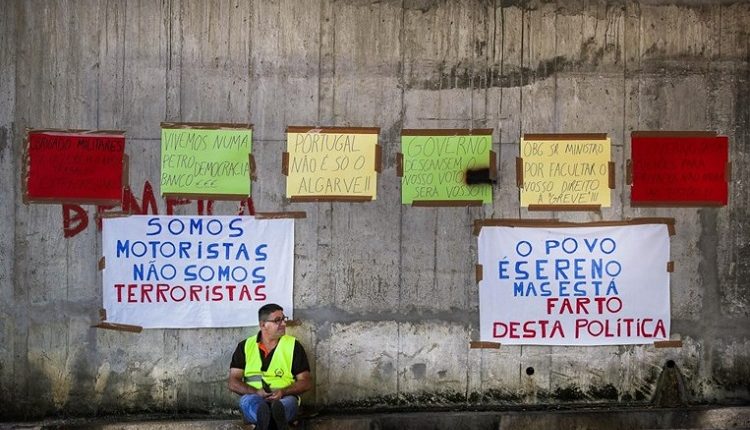 MILITARES
VIVEMOS NUMA
PETRO DEMOCRACIA
BANCO €€€
PORTUGAL
NÃO É SÓ O
ALGARVE!!
GOVERNO
DESCANSEM O
NOSSO VOTO
SERÁ
OBG SR MINISTRO
POR FACULTAR O
NOSSO DIREITO
À "GREVE"!!!
PARA
SOMOS
MOTORISTAS
NÃO SOMOS
TERRORISTAS
O POVO
É SERENO
MAS ESTÁ
FARTO
DESTA POLÍTICA